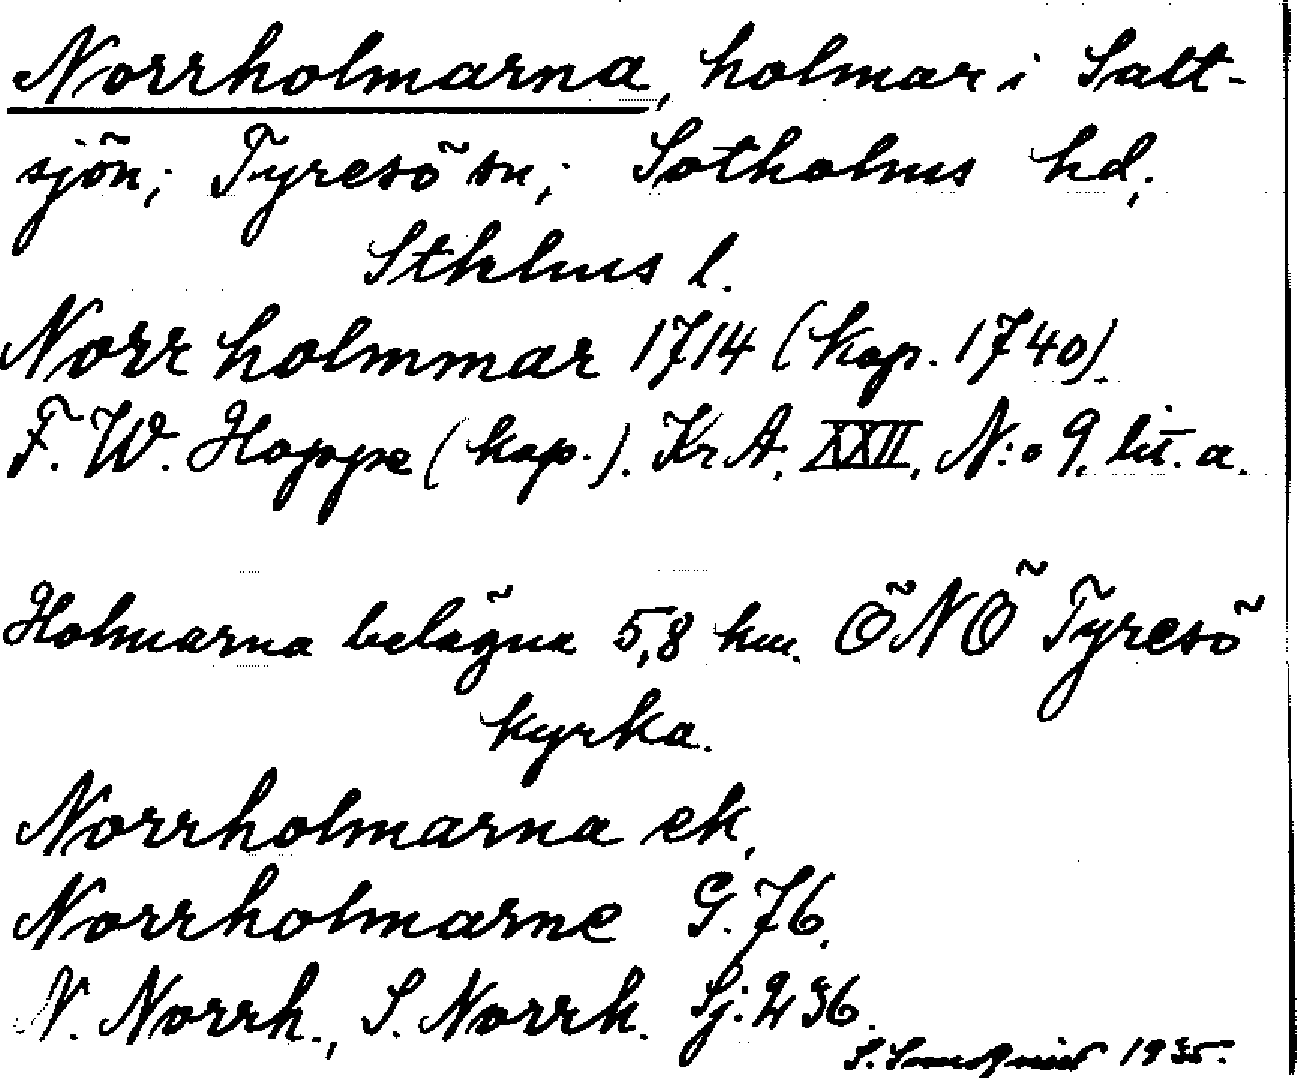 Norrholmarna, holmar i Salt-
sjön; Tyresö sn; Sotholms hd,
Sthlms l.
Norr holmmar 1714 (kop. 1740)
F. W. Hoppe (kop.). Kr A. XXII, N:o 9. lit. a.
Holmarna belägna 5,8 km. ÖNÖ Tyresö
kyrka.
Norrholmarna ek,
Norrholmarne G. 76.
N. Norrh., S. Norrh. Sj: 236.
S. 1935.